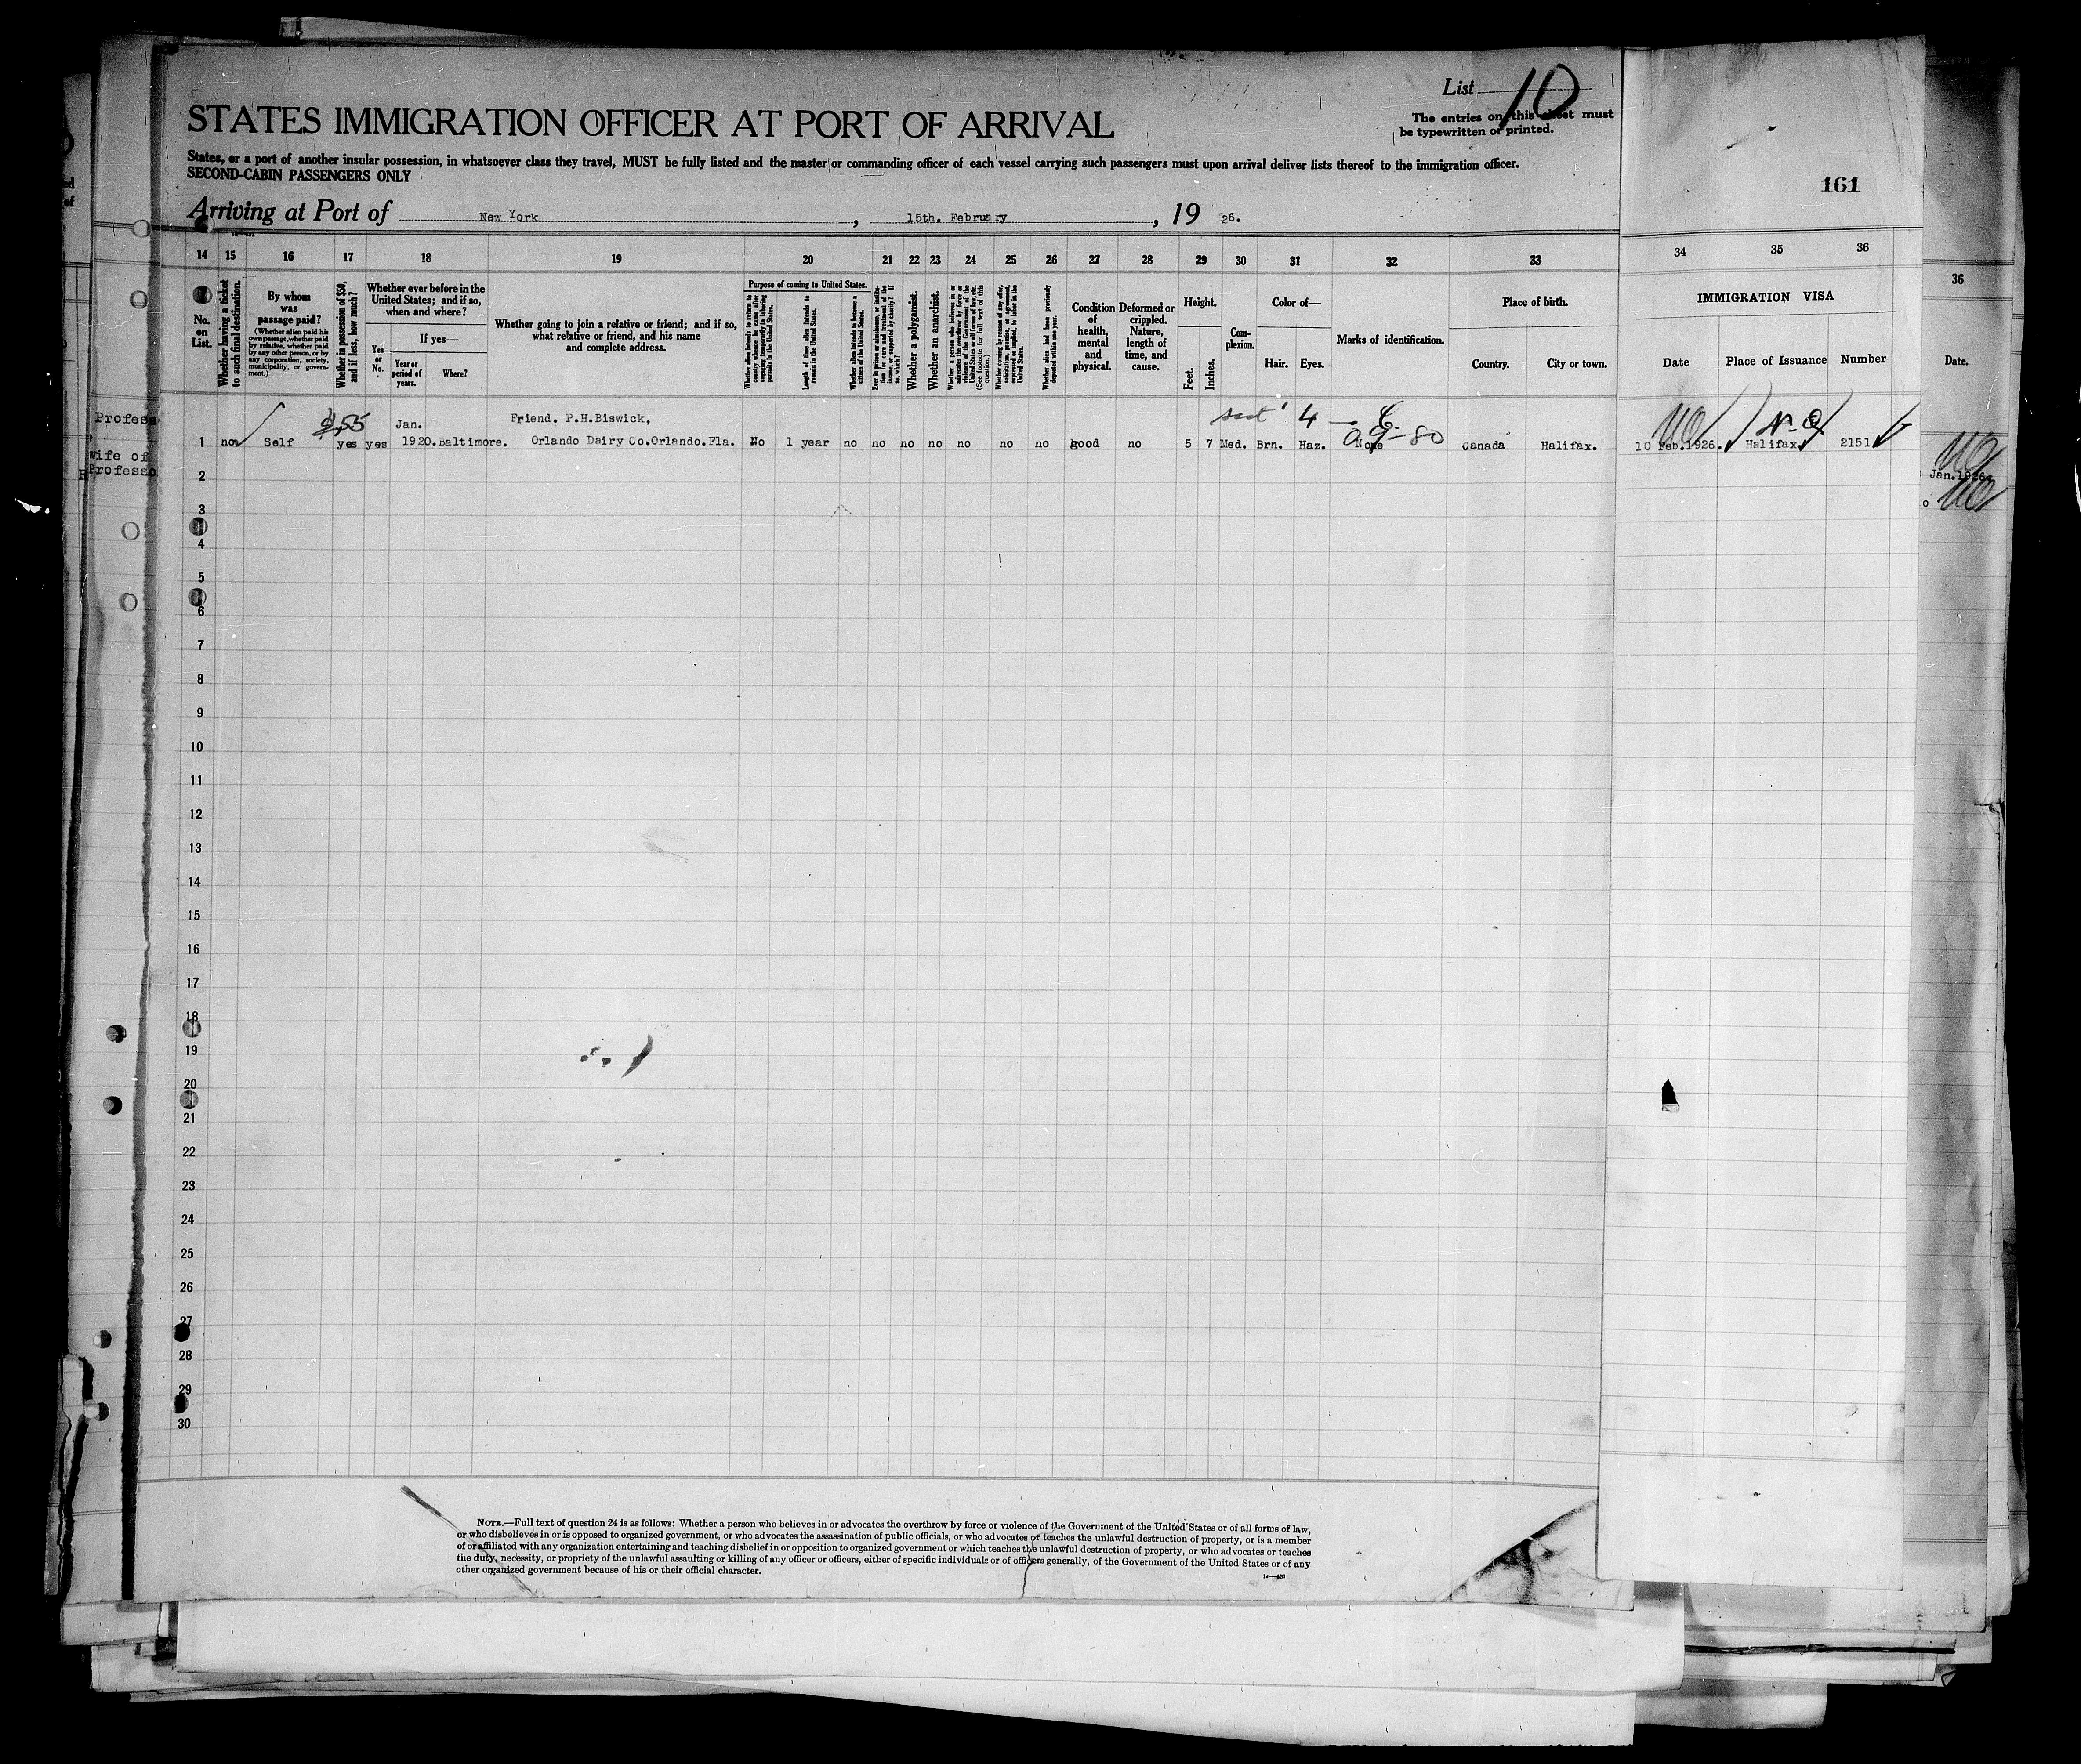 List 10
STATES IMMIGRATION OFFICER AT PORT OF ARRIVAL
The entries on this sheet must
be typewritten or printed.
States, or a port of another insular possession, in whatsoever class they travel, MUST be fully listed and the master or commanding officer of each vessel carrying such passengers must upon arrival deliver lists thereof to the immigration officer.
SECOND-CABIN PASSENGERS ONLY
161
Arriving at Port of New York, 15th. February, 19 26.
14 15 16 17 18 19 20 21 22 23 24 25 26 27 28 29 30 31 32 33 34 35 36
36
No. on List.
Whether having a ticket to such final destination.
By whom was passage paid?
(Whether alien paid his own passage, whether paid by relative, whether paid by any other person, or by any corporation, society, municipality, or government.)
Whether in possession of $50, and if less, how much?
Whether ever before in the United States; and if so, when and where?
Yes or No.
If yes—
Year or period of years.
Where?
Whether going to join a relative or friend; and if so, what relative or friend, and his name and complete address.
Purpose of coming to United States.
Whether alien intends to return to country whence he came after engaging temporarily in laboring pursuits in the United States.
Length of time alien intends to remain in the United States.
Whether alien intends to become a citizen of the United States.
Ever in prison or almshouse, or institution for care and treatment of the insane, or supported by charity? If so, which?
Whether a polygamist.
Whether an anarchist.
Whether a person who believes in or advocates the overthrow by force or violence of the Government of the United States or all forms of law, etc. (See footnote for full text of this question.)
Whether coming by reason of any offer, solicitation, promise, or agreement, expressed or implied, to labor in the United States.
Whether alien had been previously deported within one year.
Condition of health, mental and physical.
Deformed or crippled. Nature, length of time, and cause.
Height.
Feet. Inches.
Complexion.
Color of—
Hair. Eyes.
Marks of identification.
Place of birth.
Country. City or town.
IMMIGRATION VISA
Date Place of Issuance Number
Date.
Profess
$55 Jan. Friend. P.H.Biswick, 4
1 no Self yes yes 1920. Baltimore. Orlando Dairy Co.Orlando.Fla. No 1 year no no no no no no no good no 5 7 Med. Brn. Haz. None Canada Halifax. 10 Feb.1926. Halifax. 2151
wife of
Professo
Jan.1926.
2
3
4
5
6
7
8
9
10
11
12
13
14
15
16
17
18
19
20
21
22
23
24
25
26
27
28
29
30
NOTE.—Full text of question 24 is as follows: Whether a person who believes in or advocates the overthrow by force or violence of the Government of the United States or of all forms of law,
or who disbelieves in or is opposed to organized government, or who advocates the assassination of public officials, or who advocates or teaches the unlawful destruction of property, or is a member
of or affiliated with any organization entertaining and teaching disbelief in or opposition to organized government or which teaches the unlawful destruction of property, or who advocates or teaches
the duty, necessity, or propriety of the unlawful assaulting or killing of any officer or officers, either of specific individuals or of officers generally, of the Government of the United States or of any
other organized government because of his or their official character.